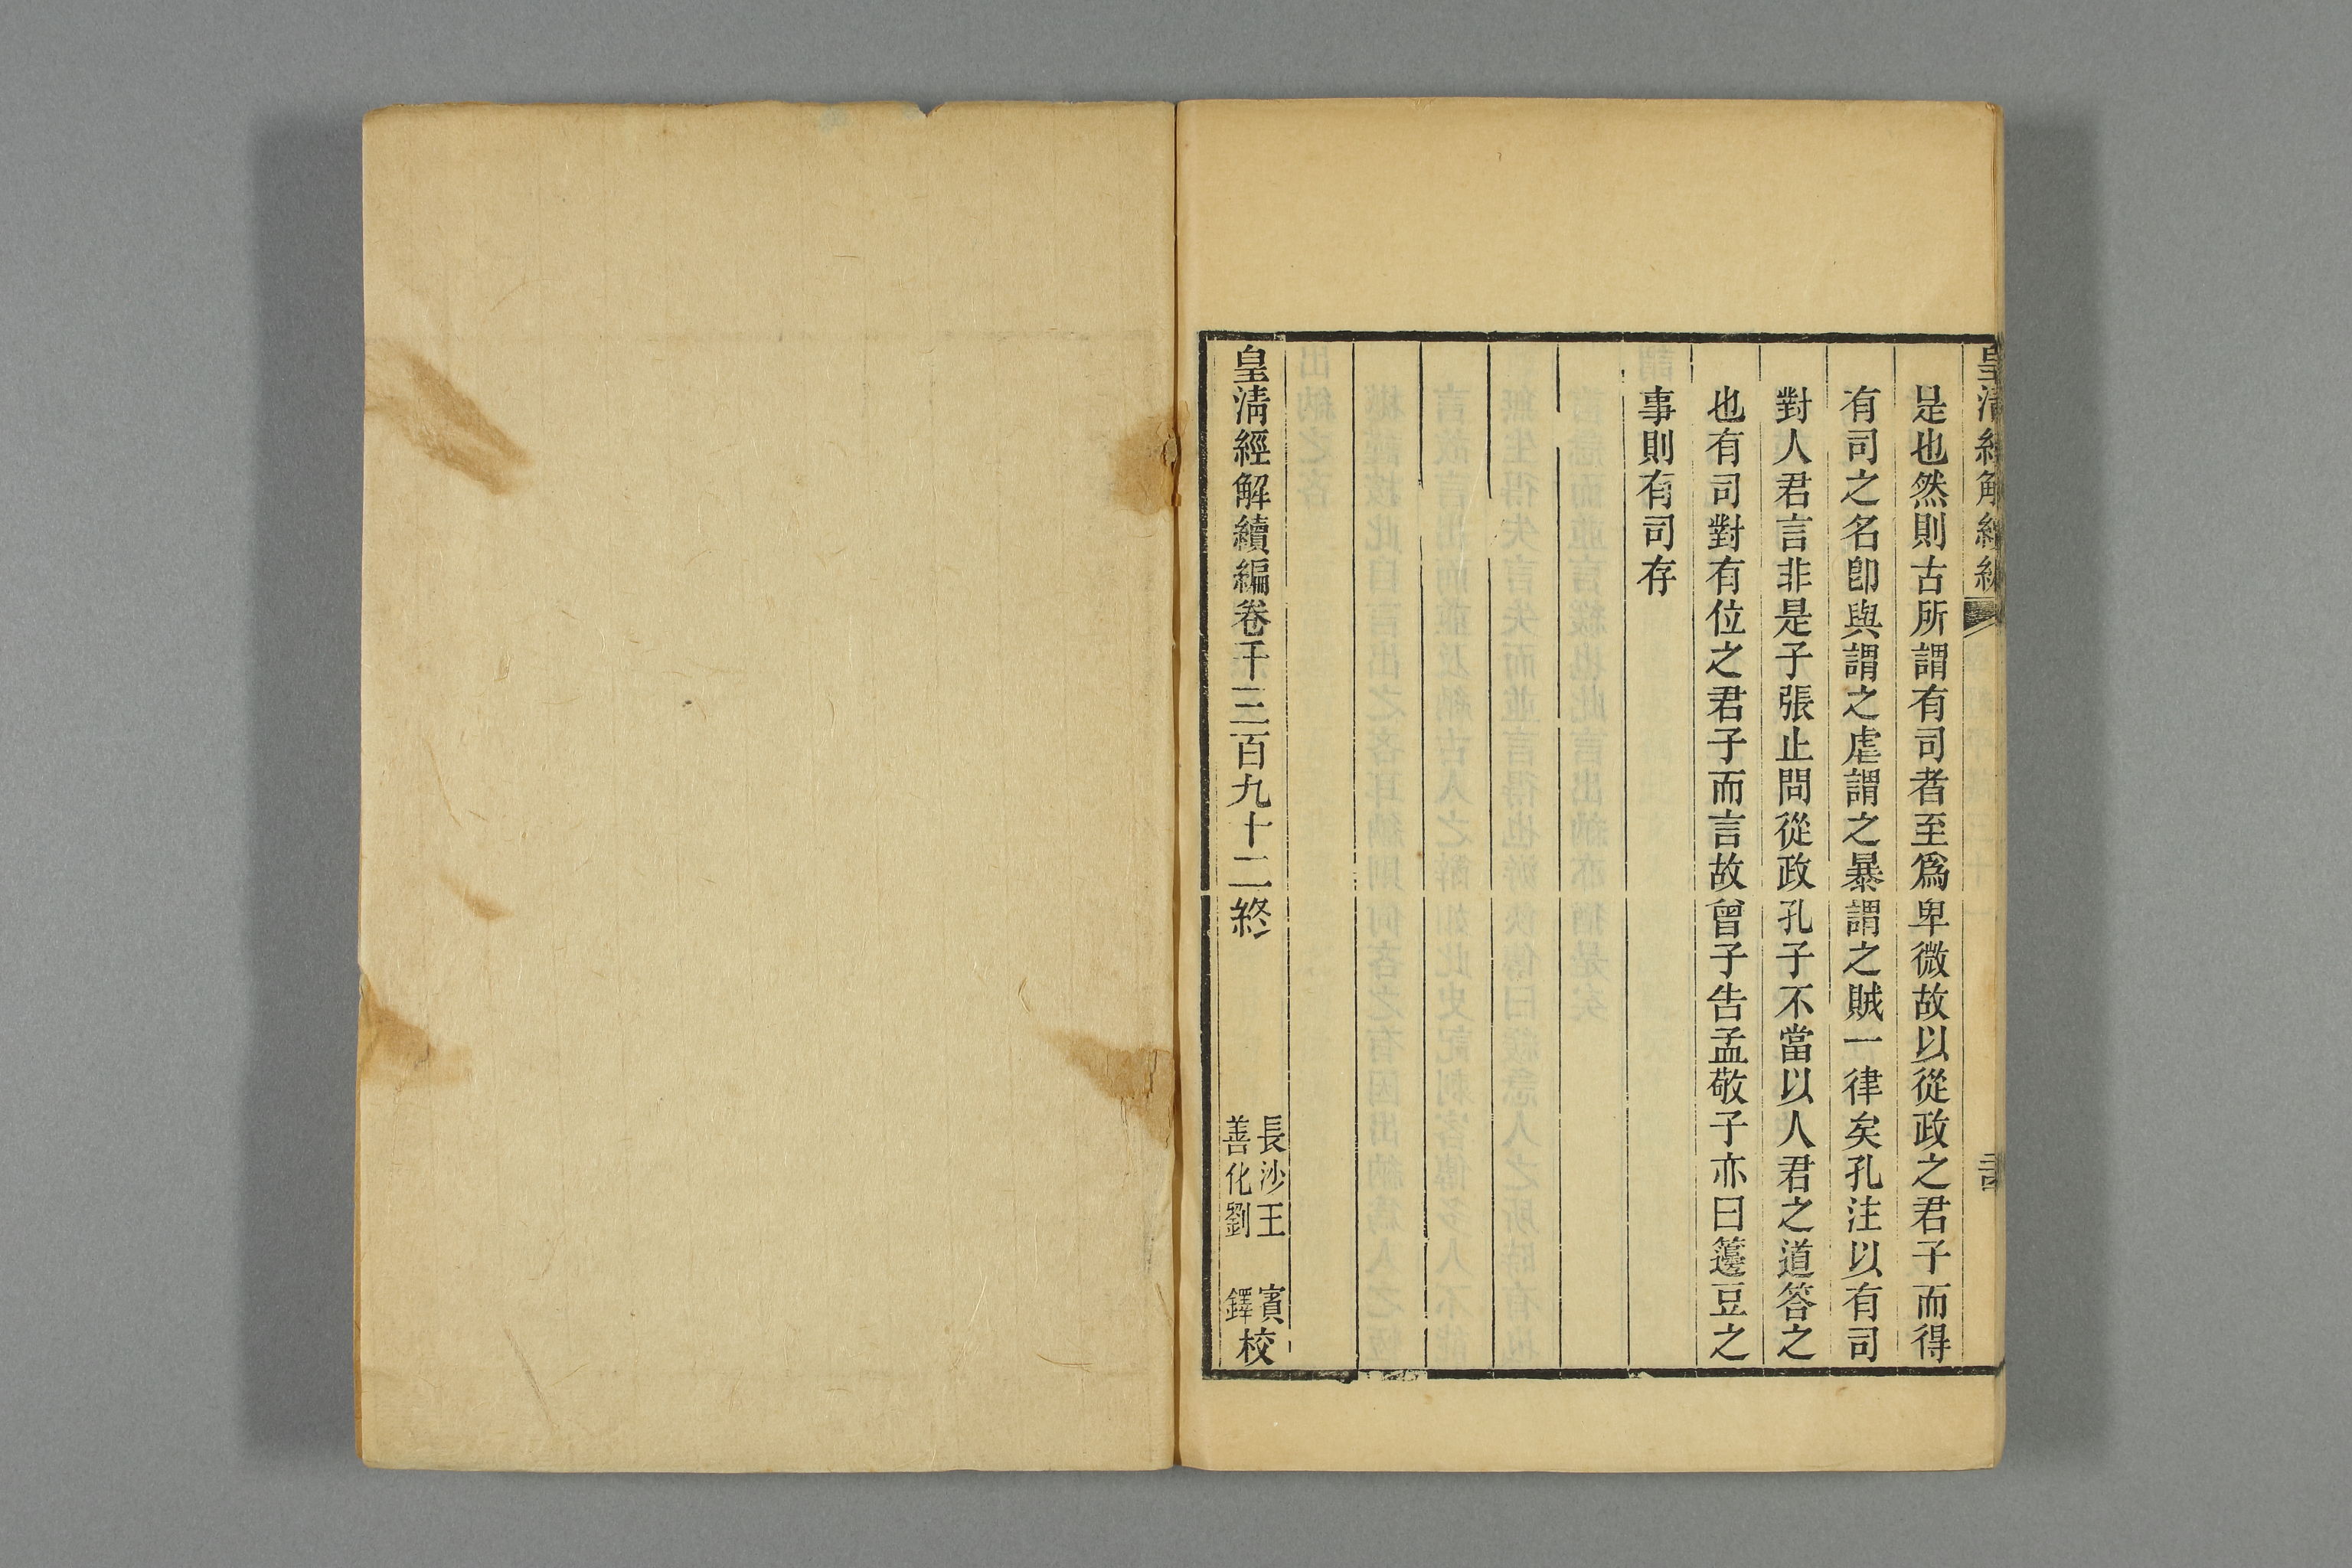 皇清經解續編
是也然則古所謂有司者至爲卑微故以從政之君子而得
有司之名卽與謂之虐謂之暴謂之賊一律矣孔注以有司
對人君言非是子張止問從政孔子不當以人君之道答之
也有司對有位之君子而言故曾子告孟敬子亦曰籩豆之
事則有司存
皇清經解續編卷千三百九十二終
長沙王賓
善化劉鐸
校